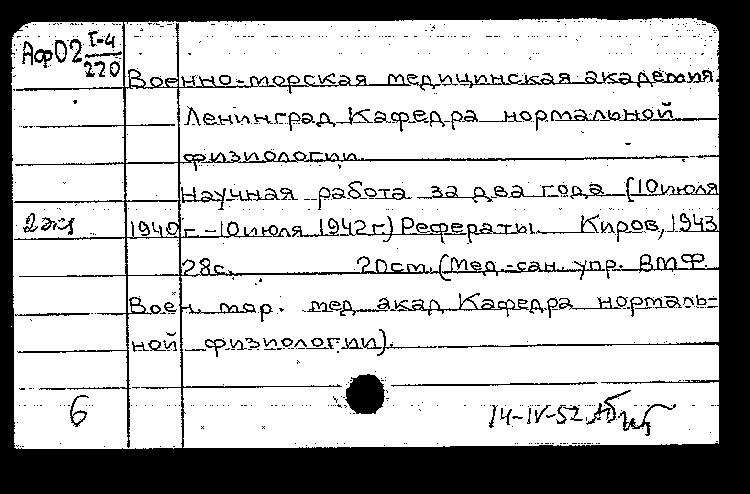 Аф02 I-4/220
Военно-морская медицинская академия.
Ленинград Кафедра нормальной
физиологии.
Научная работа за два года (10 июля
2 экз 1940 г. - 10 июля 1942 г.) Рефераты. Киров, 1943
28с. 20ст. (Мед.-сан. упр. ВМФ.
Воен. мор. мед акад Кафедра нормаль-
ной физиологии).
6
14-IV-52